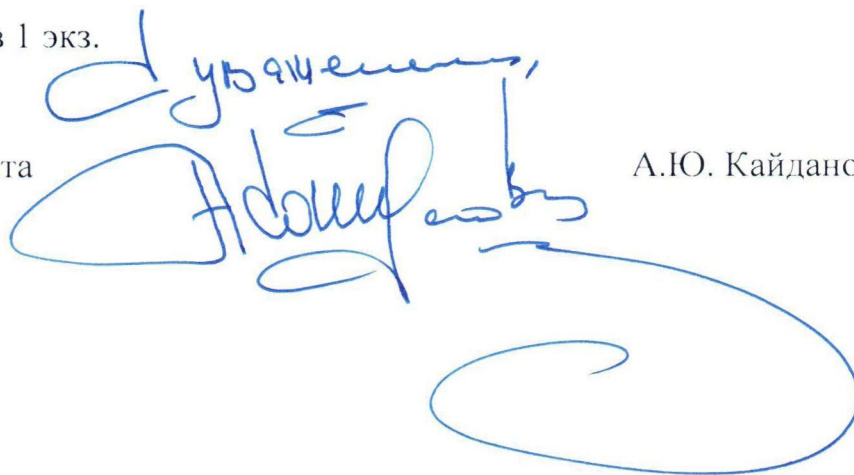 в 1 экз.
С уважением,
та
А.Ю. Кайдано